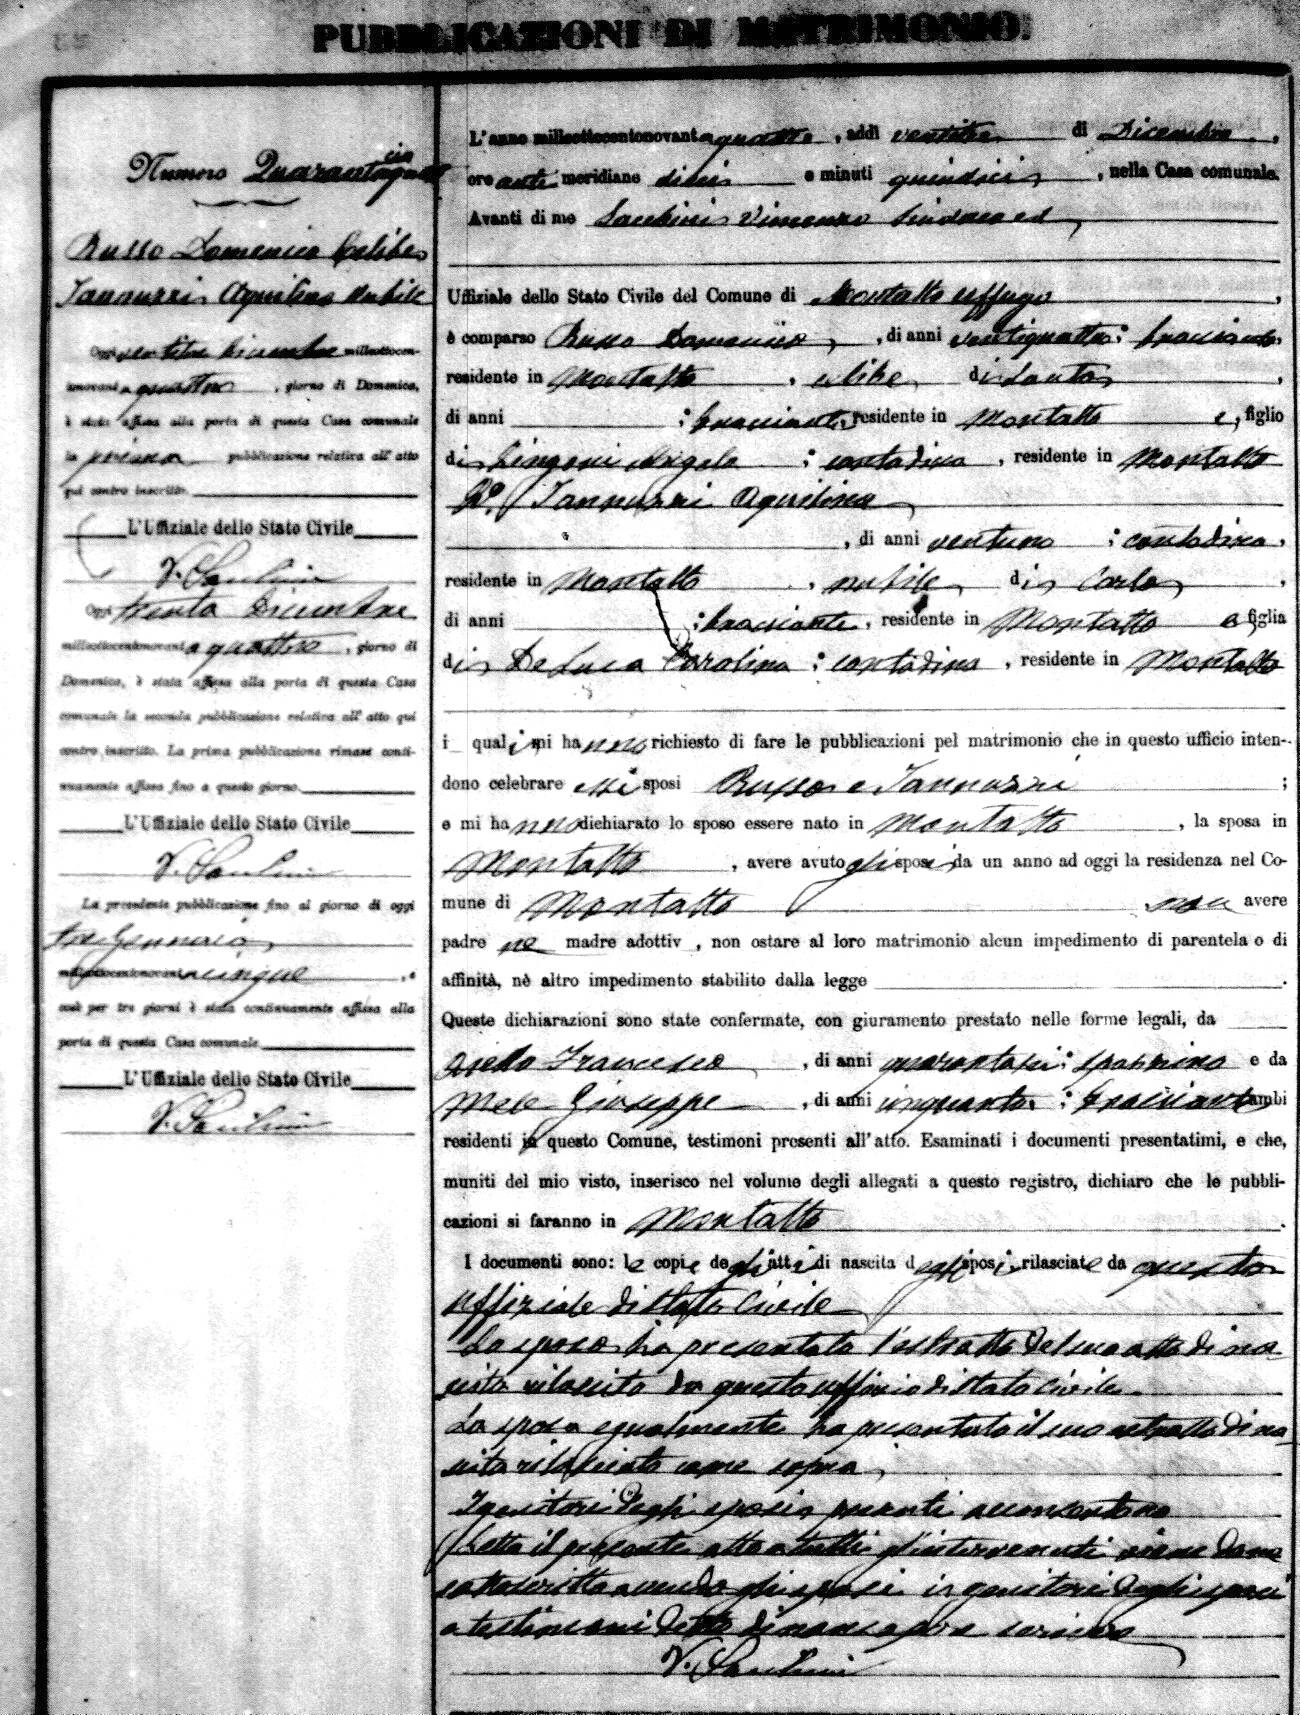 PUBBLICAZIONI DI MATRIMONIO.
Numero Quaranta
Russo Domenico Celibe
Iannuzzi Aquilina Nubile
Oggi ventitre Dicembre milleottocen-
tonovantaquattro, giorno di Domenica,
è stata affissa alla porta di questa Casa comunale
la prima pubblicazione relativa all'atto
qui contro inscritto.
L'Uffiziale dello Stato Civile
V.
Oggi trenta Dicembre
milleottocentonovantaquattro, giorno di
Domenica, è stata affissa alla porta di questa Casa
comunale la seconda pubblicazione relativa all'atto qui
contro inscritto. La prima pubblicazione rimase conti-
nuamente affissa fino a questo giorno.
L'Uffiziale dello Stato Civile
V.
La precedente pubblicazione fino al giorno di oggi
tre Gennaio
milleottocentonovantacinque, e
così per tre giorni è stata continuamente affissa alla
porta di questa Casa comunale.
L'Uffiziale dello Stato Civile
V.
L'anno milleottocentonovantaquattro, addì ventitre di Dicembre,
ore antimeridiane dieci e minuti quindici, nella Casa comunale.
Avanti di me Vincenzo Sindaco ed
Uffiziale dello Stato Civile del Comune di Montalto Uffugo,
è comparso Russo Domenico, di anni ventiquattro; bracciante,
residente in Montalto, celibe, di Santo,
di anni ; bracciante, residente in Montalto e, figlio
di Angela; contadina, residente in Montalto
2º Iannuzzi Aquilina
, di anni ventuno; contadina,
residente in Montalto, nubile, di Carlo,
di anni ; bracciante, residente in Montalto e, figlia
di De Luca Carolina; contadina, residente in Montalto
i quali mi hanno richiesto di fare le pubblicazioni pel matrimonio che in questo ufficio inten-
dono celebrare essi sposi Russo e Iannuzzi;
e mi hanno dichiarato lo sposo essere nato in Montalto, la sposa in
Montalto, avere avuto gli sposi da un anno ad oggi la residenza nel Co-
mune di Montalto non avere
padre ne madre adottiv , non ostare al loro matrimonio alcun impedimento di parentela o di
affinità, nè altro impedimento stabilito dalla legge.
Queste dichiarazioni sono state confermate, con giuramento prestato nelle forme legali, da
Aiello Francesco, di anni quarantasei; spazzino e da
Mele Giuseppe, di anni cinquanta; bracciante ambi
residenti in questo Comune, testimoni presenti all'atto. Esaminati i documenti presentatimi, e che,
muniti del mio visto, inserisco nel volume degli allegati a questo registro, dichiaro che le pubbli-
cazioni si faranno in Montalto.
I documenti sono: le copie degli atti di nascita degli sposi rilasciate da questo
uffiziale di stato Civile
Lo sposo ha presentato l'estratto del suo atto di na-
scita rilasciato da questo ufficio di stato Civile.
La sposa egualmente ha presentato il suo estratto di na-
scita rilasciato come sopra,
I genitori degli sposi presenti acconsentono
Letto il presente atto a tutti gl'intervenuti viene da me
sottoscritto avendo gli sposi i genitori degli sposi
e testimoni detto di non sapere scrivere
V.